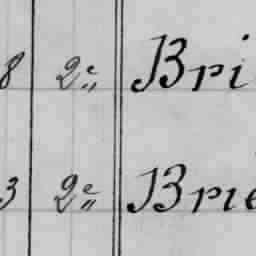 8 2e„ Bri
3 2e„ Brie